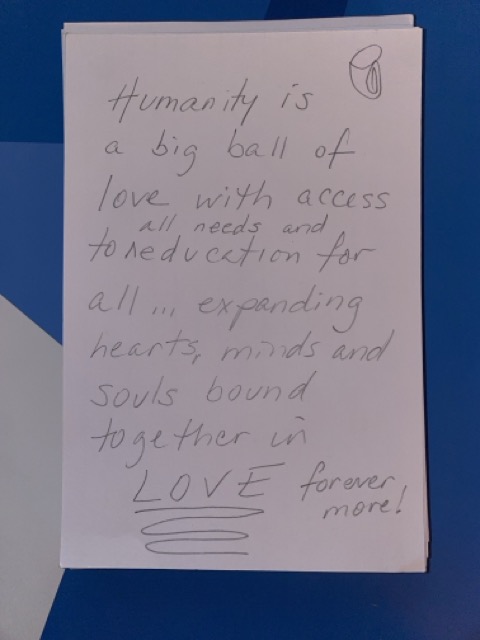 Humanity is
a big ball of
love with access
all needs and
to education for
all... expanding
hearts, minds and
souls bound
together in
LOVE forever
more!